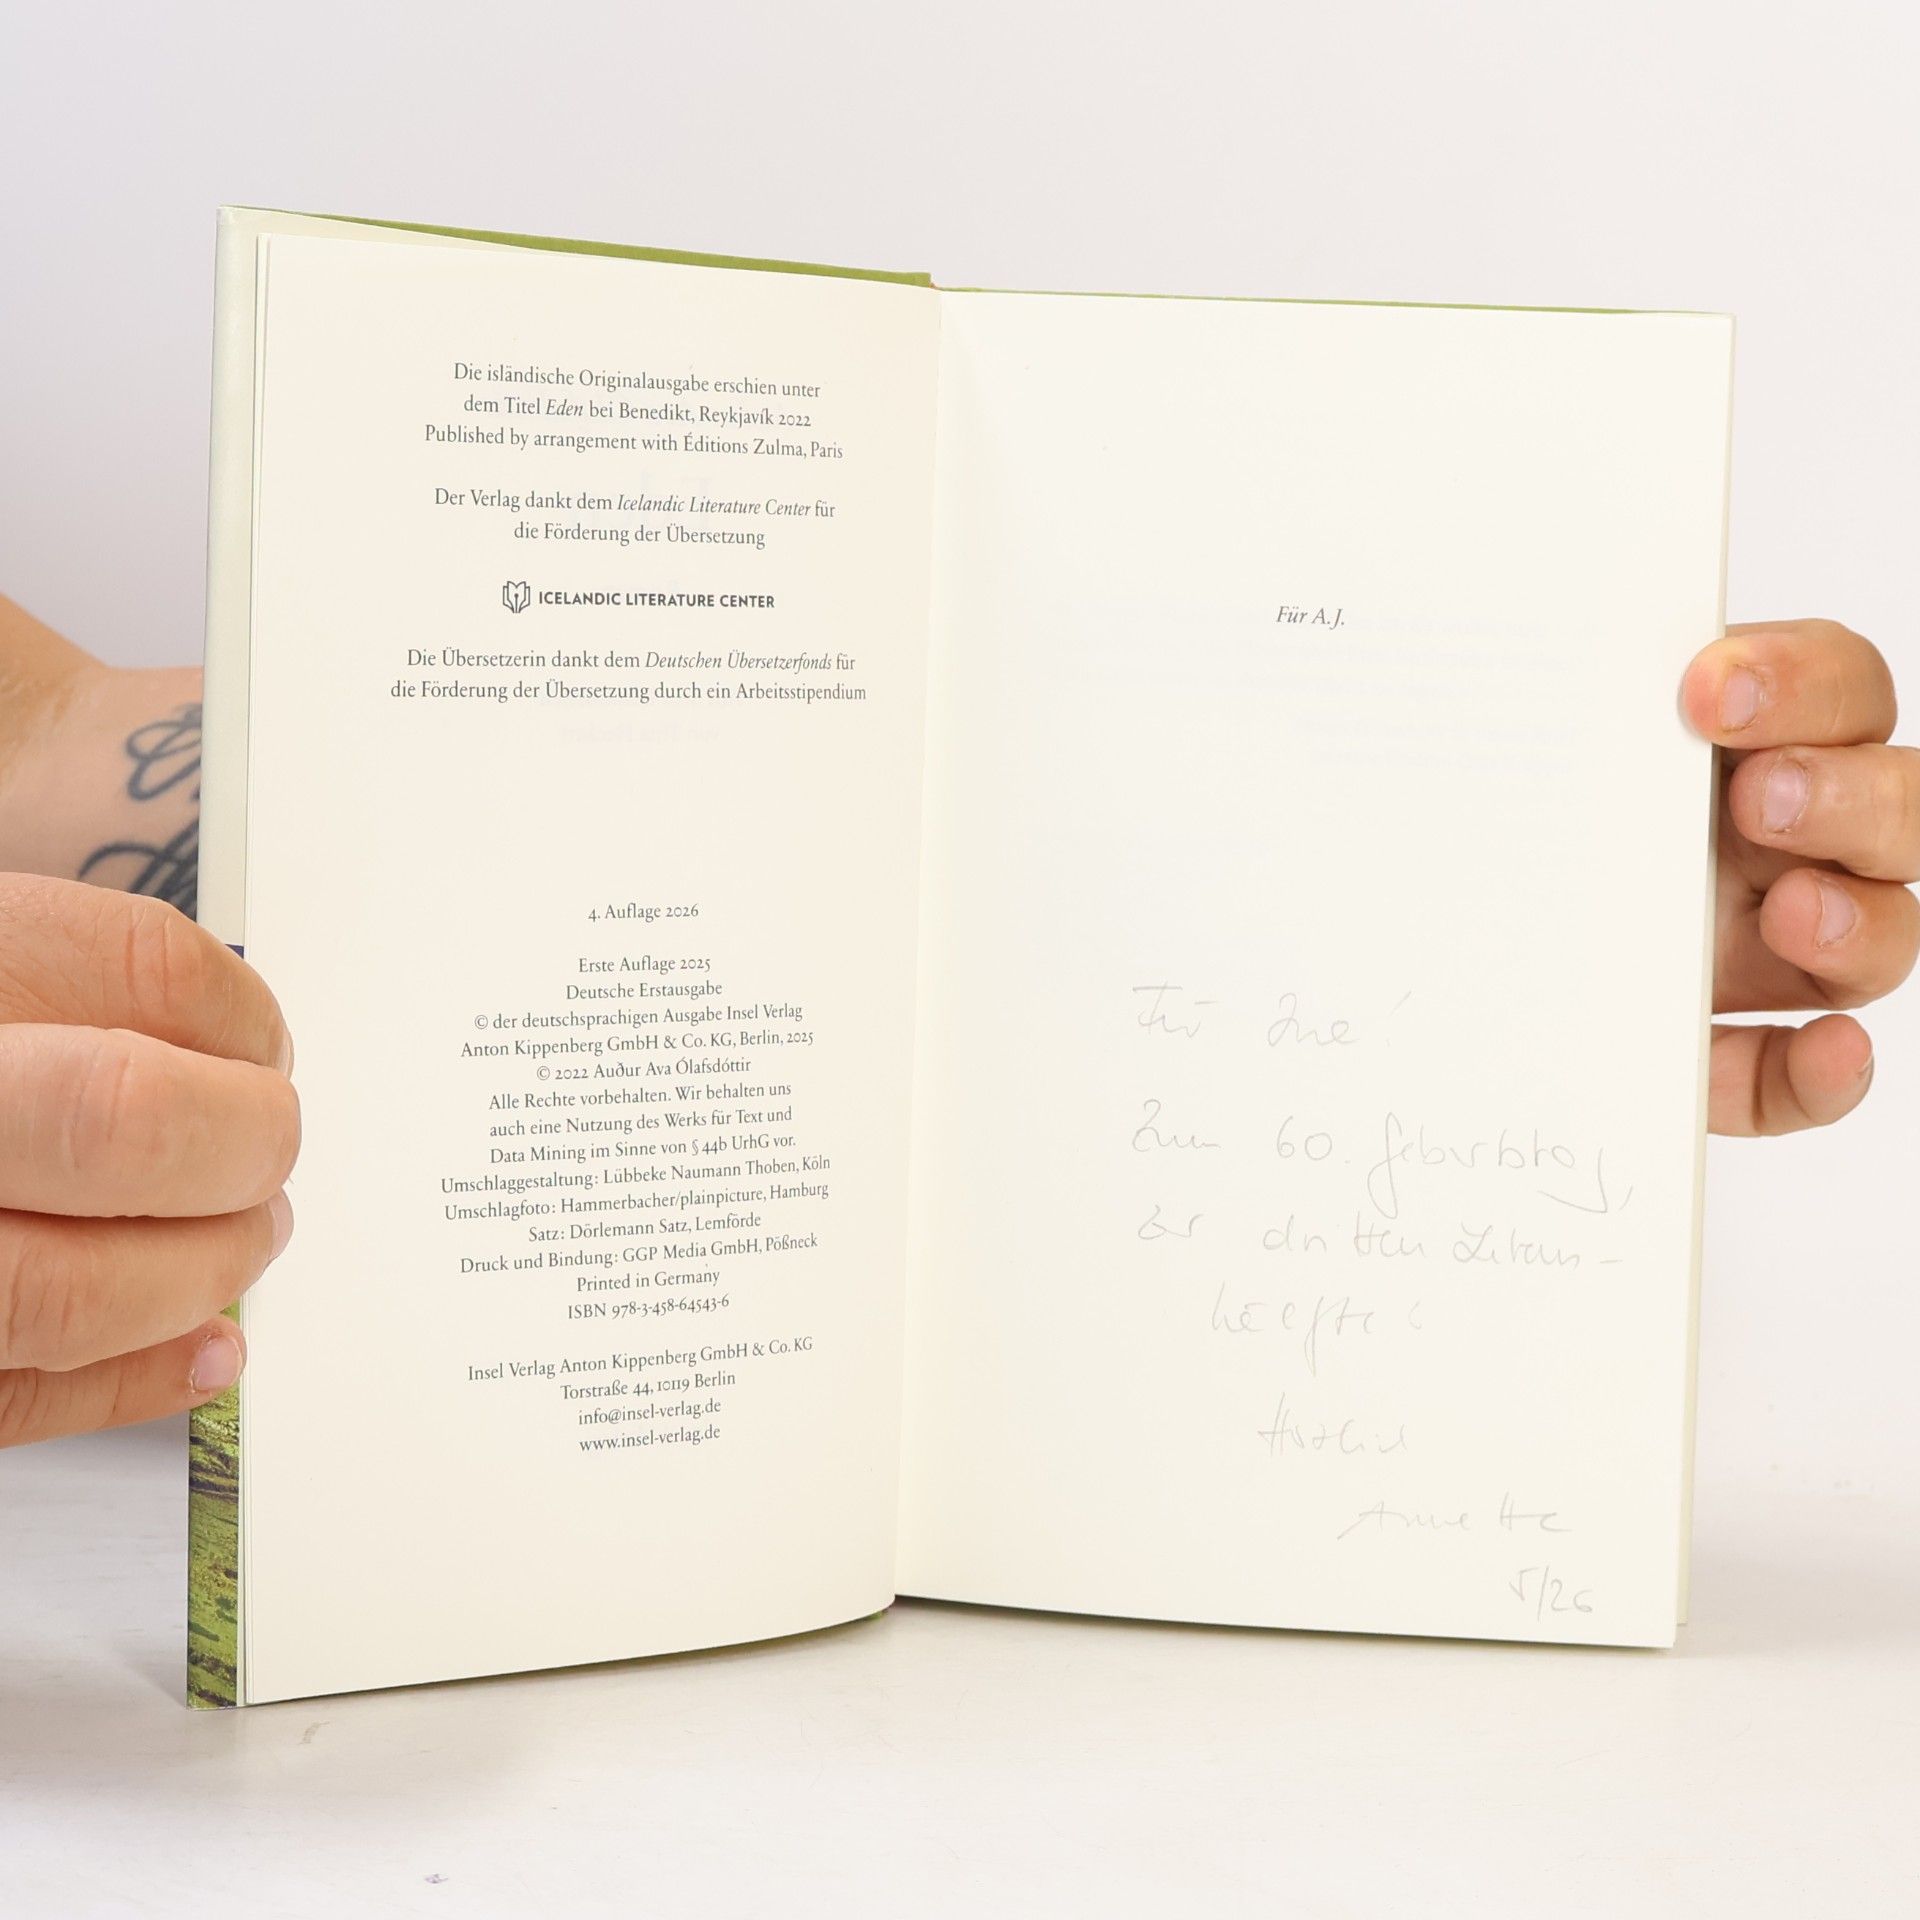 Die isländische Originalausgabe erschien unter
dem Titel Eden bei Benedikt, Reykjavík 2022
Published by arrangement with Éditions Zulma, Paris
Der Verlag dankt dem Icelandic Literature Center für
die Förderung der Übersetzung
ICELANDIC LITERATURE CENTER
Die Übersetzerin dankt dem Deutschen Übersetzerfonds für
die Förderung der Übersetzung durch ein Arbeitsstipendium
4. Auflage 2026
Erste Auflage 2025
Deutsche Erstausgabe
© der deutschsprachigen Ausgabe Insel Verlag
Anton Kippenberg GmbH & Co. KG, Berlin, 2025
© 2022 Auður Ava Ólafsdóttir
Alle Rechte vorbehalten. Wir behalten uns
auch eine Nutzung des Werks für Text und
Data Mining im Sinne von § 44b UrhG vor.
Umschlaggestaltung: Lübbeke Naumann Thoben, Köln
Umschlagfoto: Hammerbacher/plainpicture, Hamburg
Satz: Dörlemann Satz, Lemförde
Druck und Bindung: GGP Media GmbH, Pößneck
Printed in Germany
ISBN 978-3-458-64543-6
Insel Verlag Anton Kippenberg GmbH & Co. KG
Torstraße 44, 10119 Berlin
info@insel-verlag.de
www.insel-verlag.de
Für A.J.
Für Ine!
Zum 60. Geburtstag,
zur dritten Lebens-
hälfte!
Herzlich
Annette
5/26